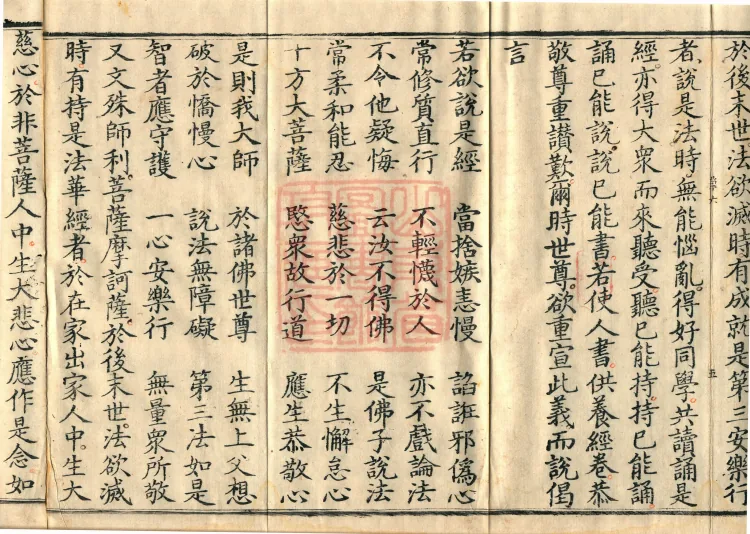 於後末世法欲滅時有成就是第三安樂行
者說是法時無能惱亂得好同學共讀誦是
經亦得大衆而來聽受聽已能持持已能誦
誦已能說說已能書若使人書供養經卷恭
敬尊重讃歎爾時世尊欲重宣此義而說偈
言
若欲說是經 當捨嫉恚慢 諂誑邪僞心
常修質直行 不輕懱於人 亦不戲論法
不令他疑悔 云汝不得佛 是佛子說法
常柔和能忍 慈悲於一切 不生懈怠心
十方大菩薩 愍衆故行道 應生恭敬心
是則我大師 於諸佛世尊 生無上父想
破於憍慢心 說法無障礙 第三法如是
智者應守護 一心安樂行 無量衆所敬
又文殊師利菩薩摩訶薩於後末世法欲滅
時有持是法華經者於在家出家人中生大
慈心於非菩薩人中生大悲心應作是念如